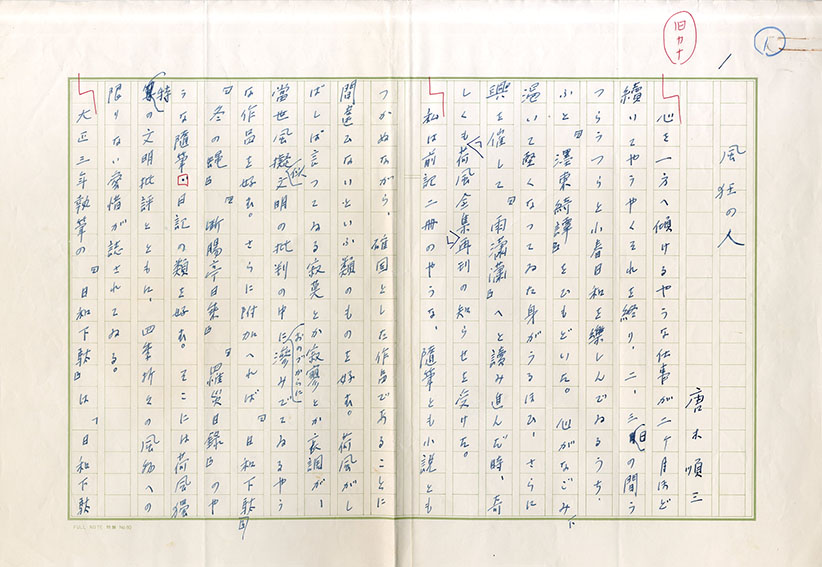 旧カナ
風狂の人
唐木順三
心を一方へ傾けるやうな仕事が二ヶ月ほど
續いてやうやくそれを終り、二、三日の間う
つらうつらと小春日和を樂しんでゐるうち、
ふと『濹東綺譚』をひもどいた。心がなごみ、
温いて堅くなつてゐた身がうるほひ、さらに
興を催して『雨瀟瀟』へと讀み進んだ時、奇
しくも荷風全集再刊の知らせを受けた。
私は前記二册のやうな、隨筆とも小説とも
つかぬながら、確固とした作品であることに
間違ひないといふ類のものを好む。荷風がし
ばしば言つてゐる寂寞とか寂寥とか哀調が、
當世風擬似文明の批判の中におのづからに滲みでてゐるやう
な作品を好む。さらに附加へれば『日和下駄』
『冬の蝿』『斷腸亭日乘』『罹災日録』のや
うな隨筆・日記の類を好む。そこには荷風獨
特の文明批評とともに、四季折々の風物への
限りない愛惜が誌されてゐる。
大正三年執筆の『日和下駄』は、「日和下駄
FULL NOTE 特製 No.80